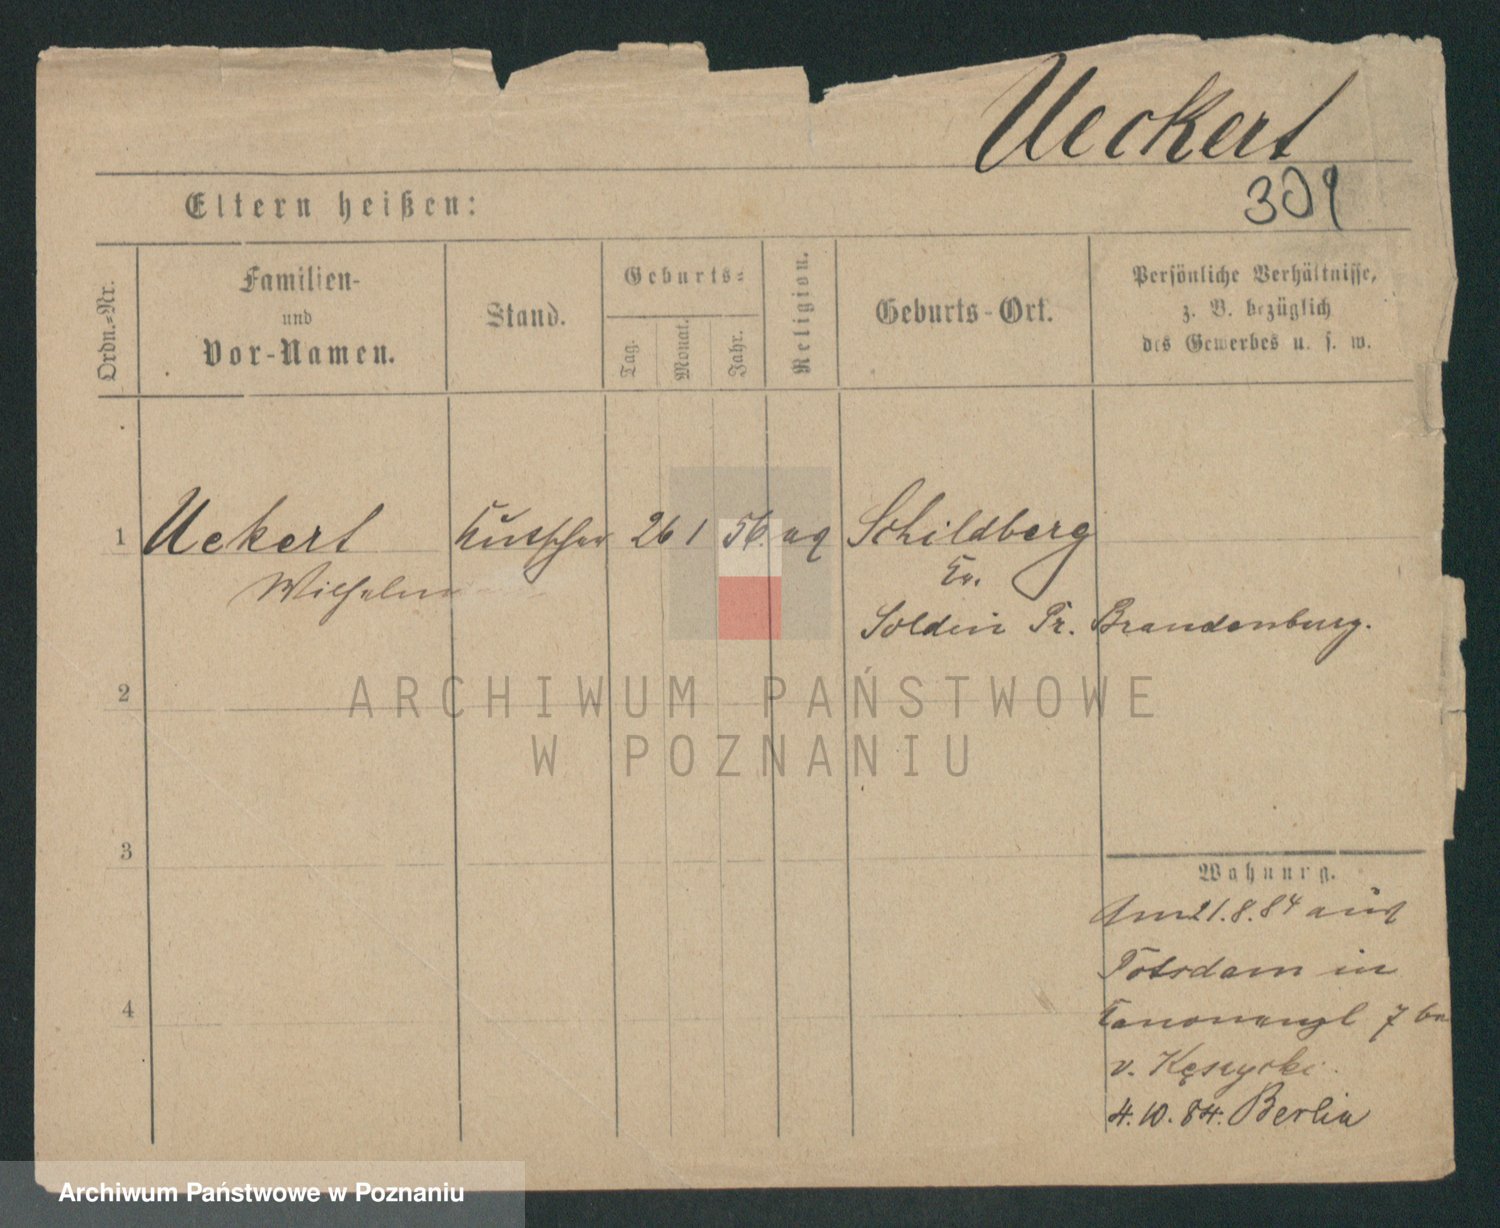 Ueckert
309
Eltern heißen:
Ordn.=Nr.
Familien-
und
Vor-Namen.
Stand.
Geburts=
Tag.
Monat.
Jahr.
Religion.
Geburts-Ort.
Persönliche Verhältnisse,
z. B. bezüglich
des Gewerbes u. s. w.
1 Uekert Kutscher 26 1 56. Schildberg
Wilhelm Kr.
Soldin Pr. Brandenburg.
2
ARCHIWUM PAŃSTWOWE
W POZNANIU
3
Wohnung.
Am 21.8.84 aus
Potsdam in
4
Kanonenpl 7 bei
v. Kęszycki.
4.10.84. Berlin
Archiwum Państwowe w Poznaniu